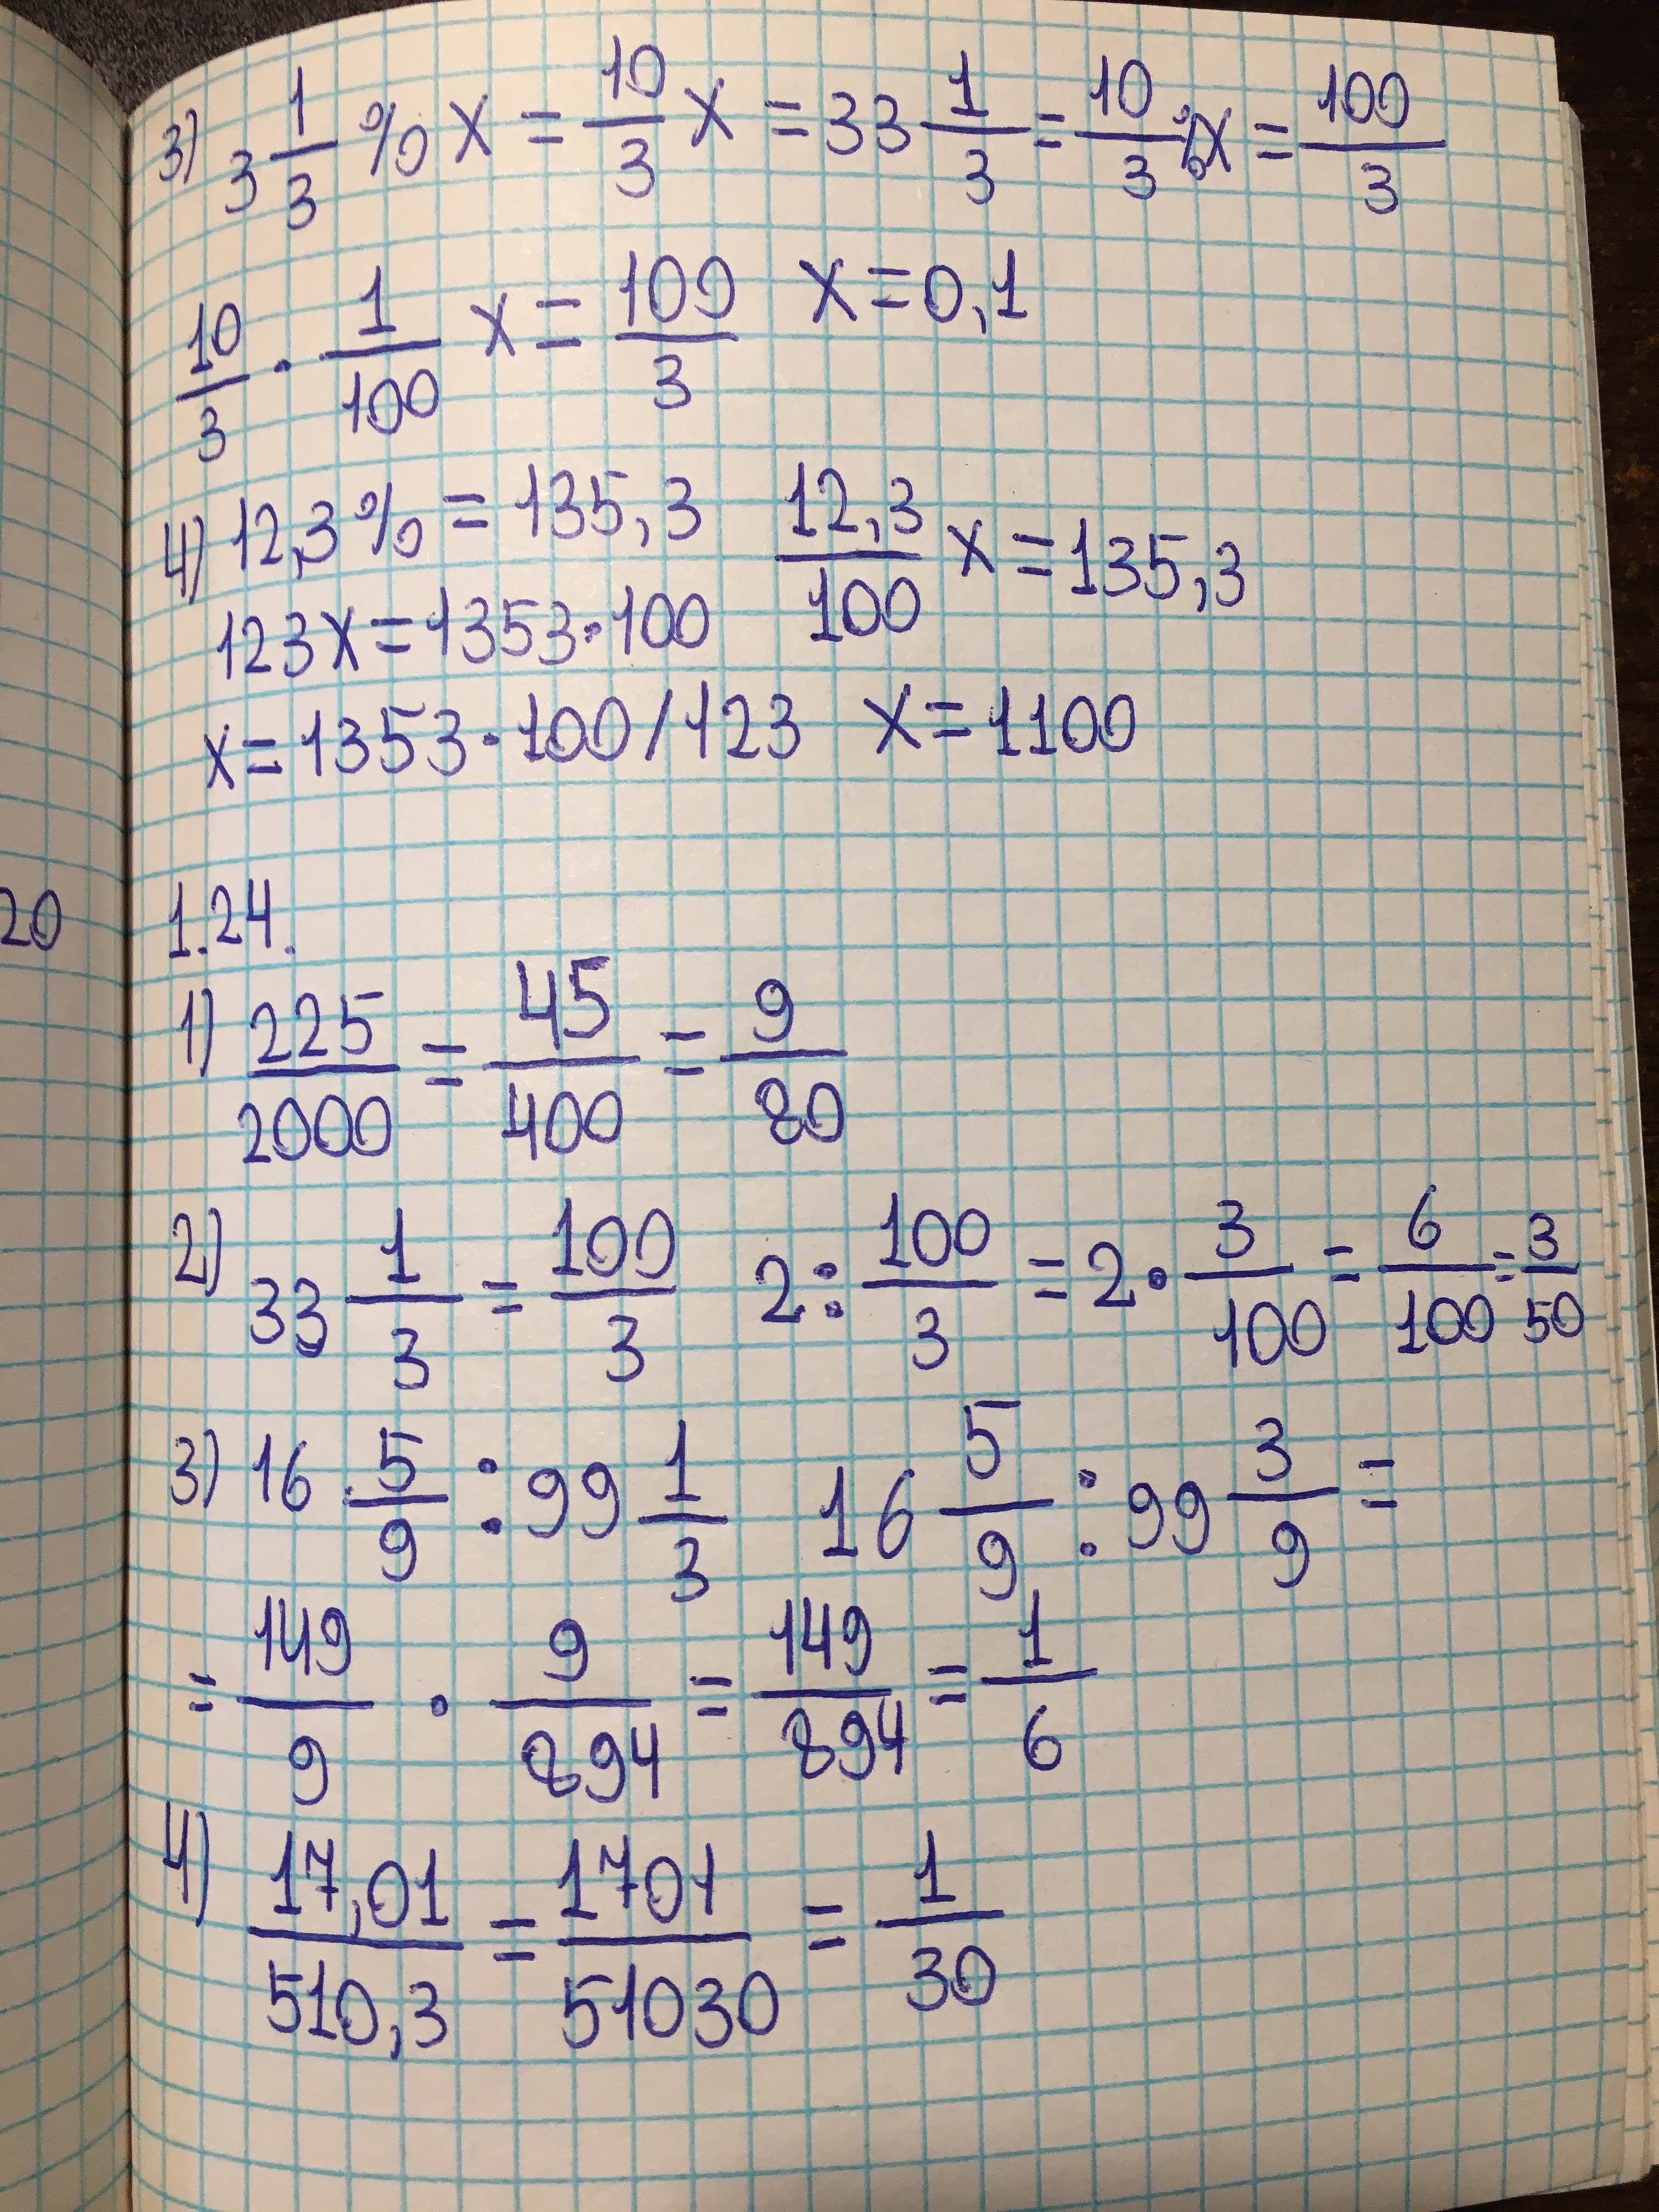 3) 3 1/3 % x = 10/3 x = 33 1/3 = 10/3 % x = 100/3
10/3 · 1/100 x = 100/3 x = 0,1
4) 12,3% = 135,3 12,3/100 x = 135,3
123x = 1353·100
x = 1353·100/123 x = 1100
20
1.24.
1) 225/2000 = 45/400 = 9/80
2) 33 1/3 = 100/3 2 : 100/3 = 2 · 3/100 = 6/100 = 3/50
3) 16 5/9 : 99 1/3 16 5/9 : 99 3/9 =
= 149/9 · 9/894 = 149/894 = 1/6
4) 17,01/510,3 = 1701/51030 = 1/30